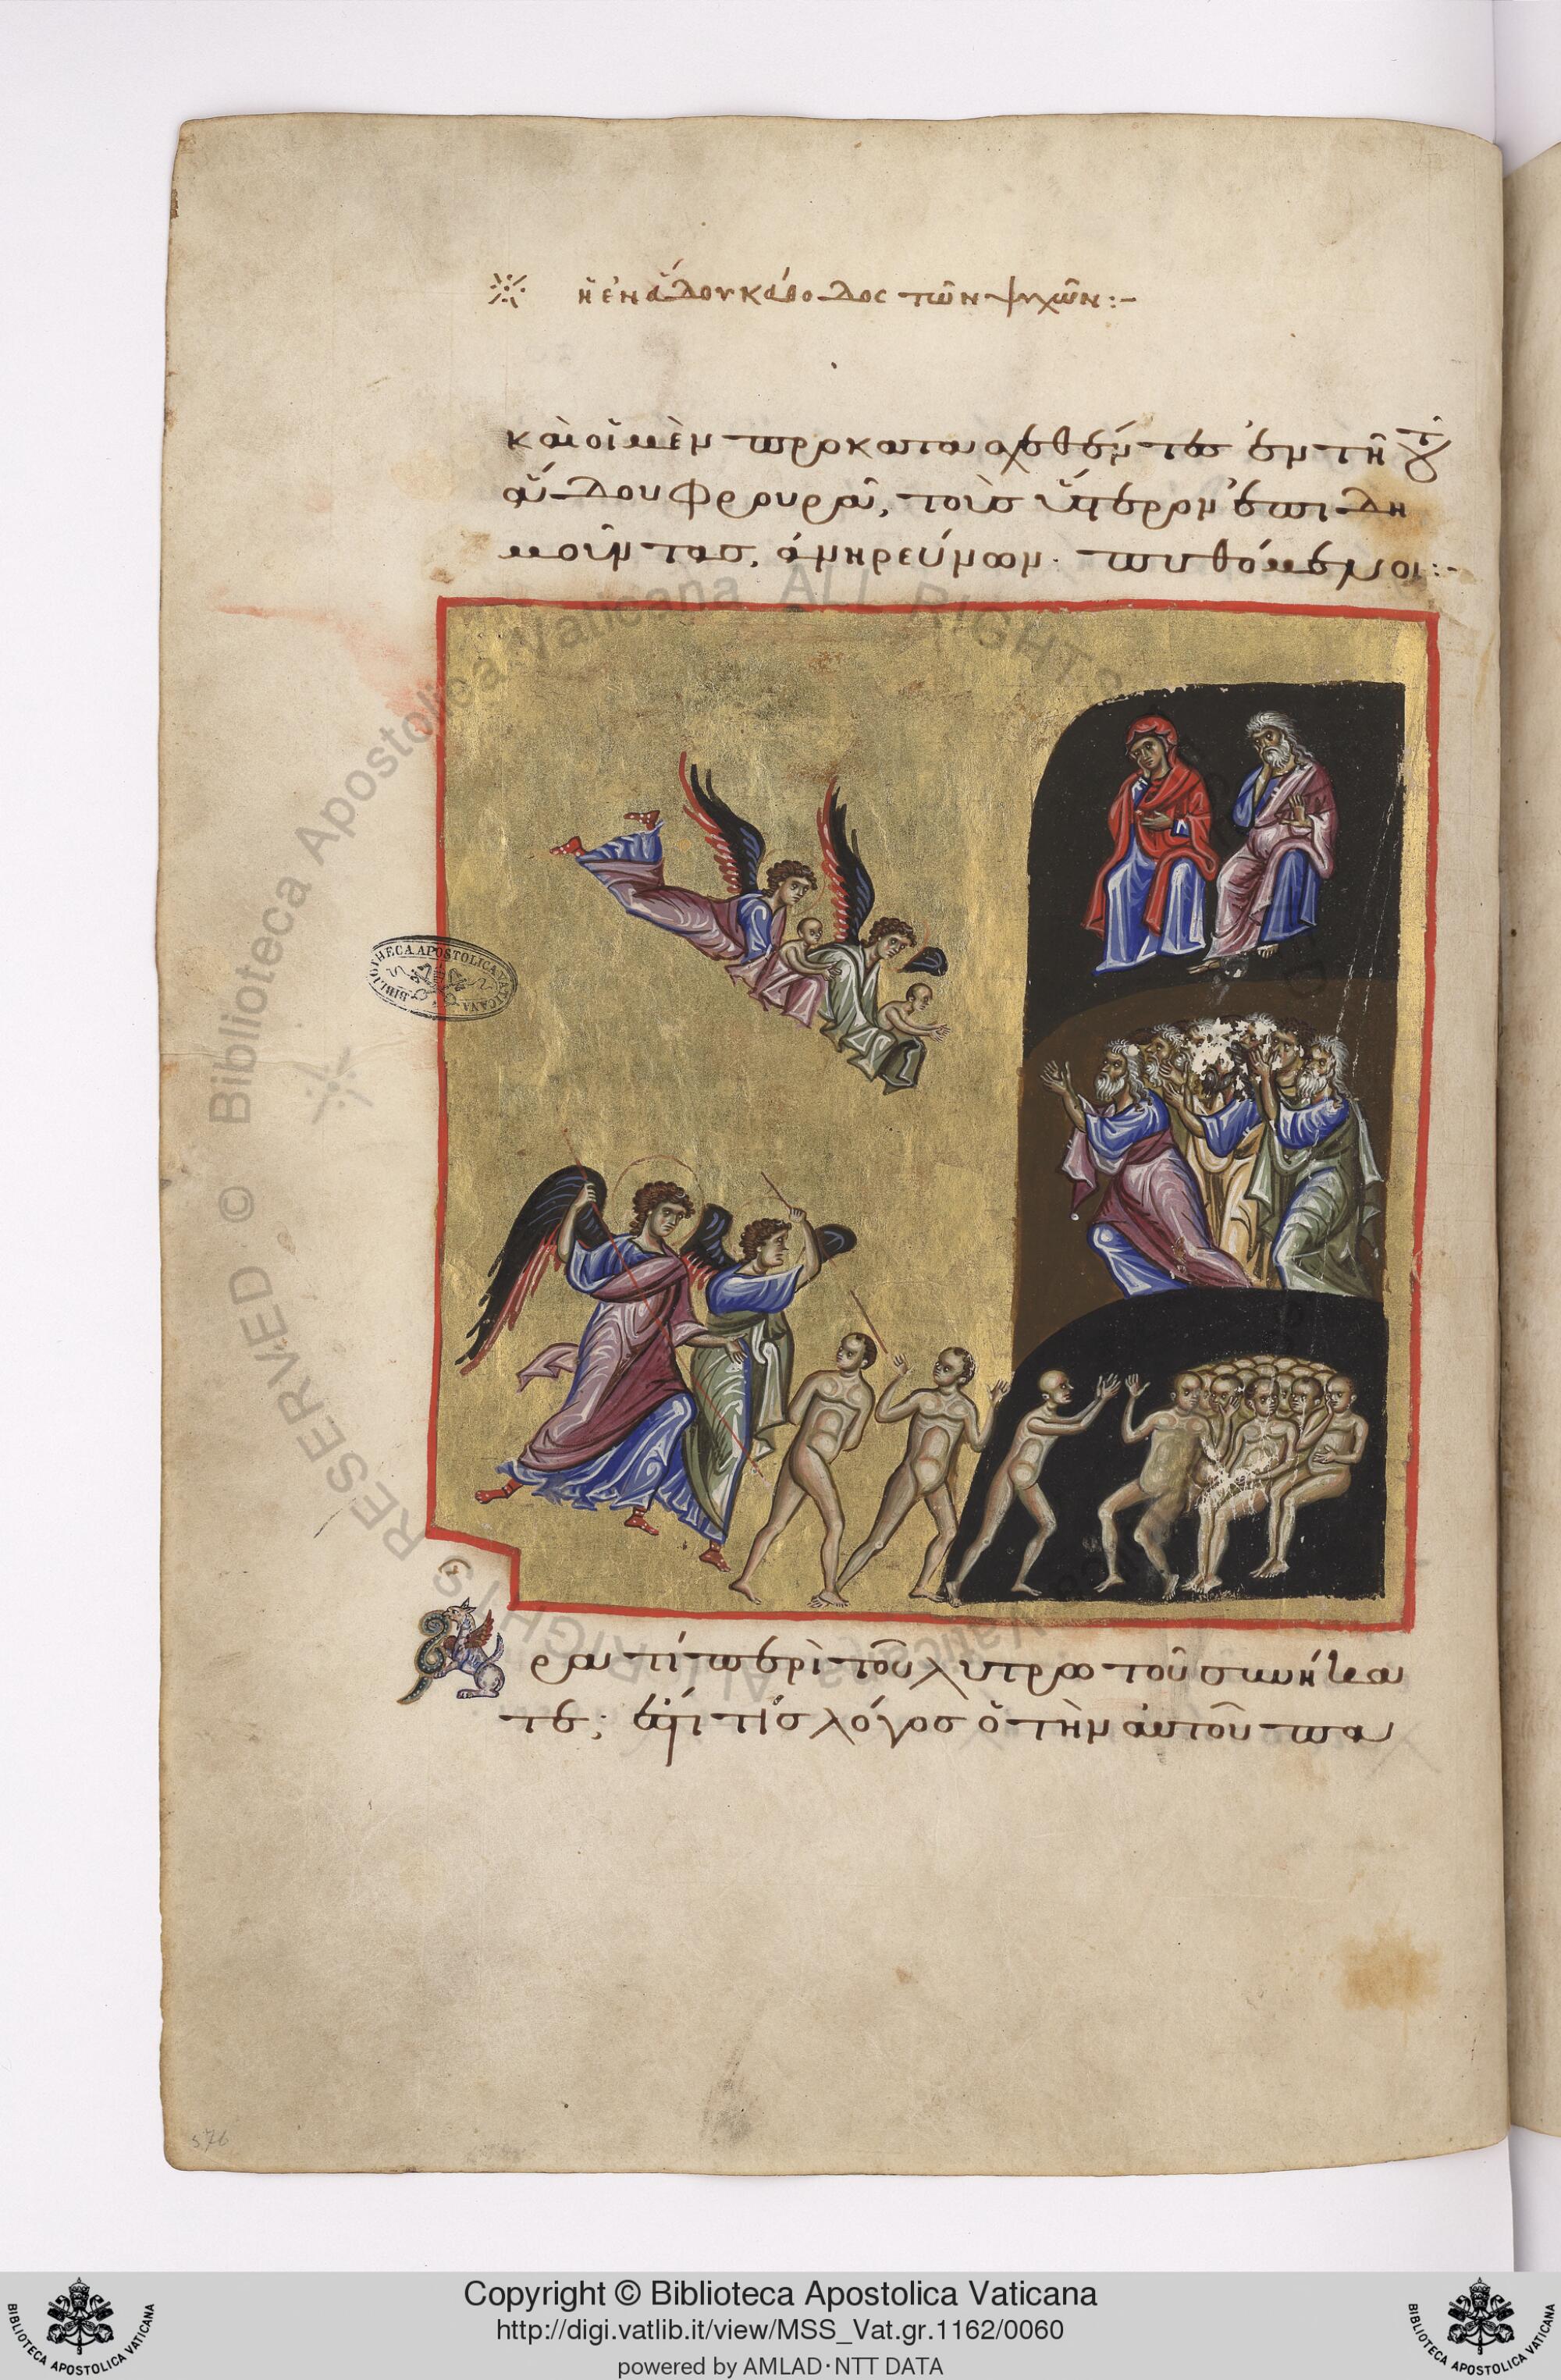 ἡ ἐν ἅδου κάθοδος τῶν ψυχῶν :-
καὶ οἱ μὲν προκαταχθέντες ἐν τῇ τοῦ
ἅδου φρουρᾷ, τοὺς ὕστερον ἐπιδη
μοῦντας, ἀνηρεύνων. πυθόμενοι :-
ἆρα τί περὶ τοῦ λυτρωτοῦ σημήνα
τε; ἔστι τίς λόγος ὃ τὴν αὐτοῦ πα
BIBLIOTHECA APOSTOLICA VATICANA
Biblioteca Apostolica Vaticana ALL RIGHTS
RESERVED ©
576
Copyright © Biblioteca Apostolica Vaticana
http://digi.vatlib.it/view/MSS_Vat.gr.1162/0060
powered by AMLAD·NTT DATA
BIBLIOTECA APOSTOLICA VATICANA
BIBLIOTECA APOSTOLICA VATICANA